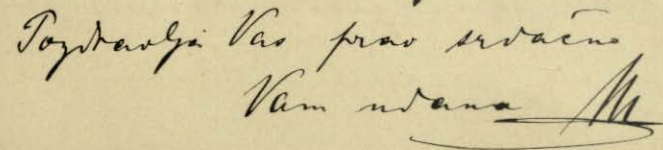 Pozdravlja Vas prav srdačno
Vam udana M